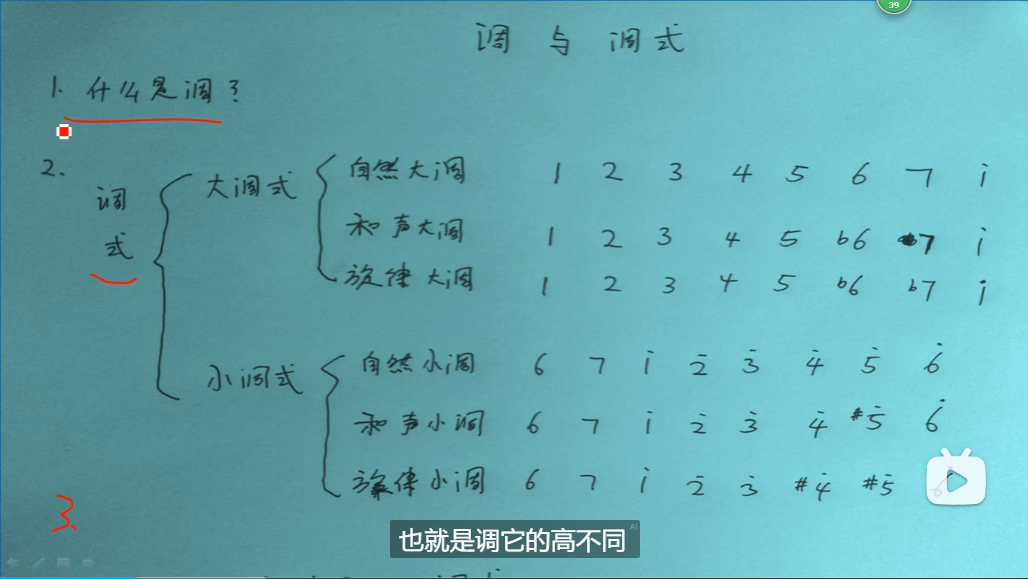 39
调 与 调式
1. 什么是调？
2.
调式
大调式
自然大调 1 2 3 4 5 6 7 i
和声大调 1 2 3 4 5 b6 7 i
旋律大调 1 2 3 4 5 b6 b7 i
小调式
自然小调 6 7 i 2̇ 3̇ 4̇ 5̇ 6̇
和声小调 6 7 i 2̇ 3̇ 4̇ #5̇ 6̇
旋律小调 6 7 i 2̇ 3̇ #4̇ #5̇
3.
AI
也就是调它的高不同